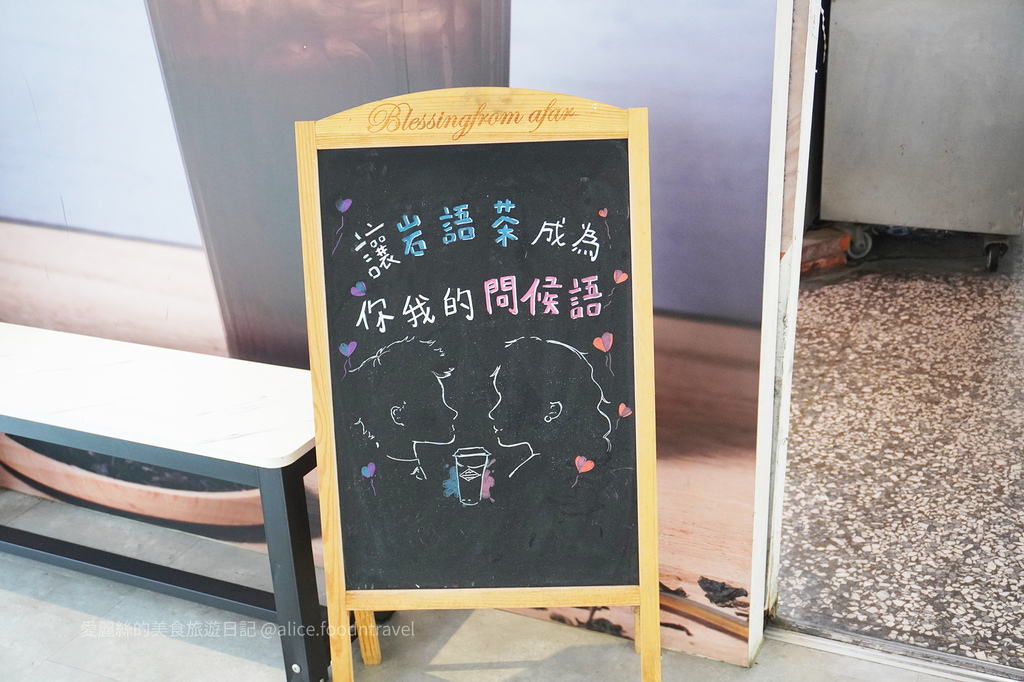 Blessingfrom afar
讓岩語茶成為
你我的問候語
愛麗絲的美食旅遊日記 @alice.foodntravel